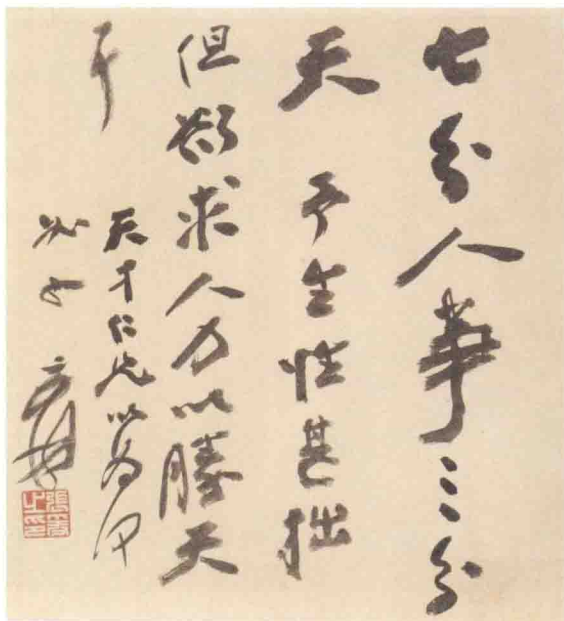 七分人事三分
天 予生性甚拙
但欲求人力以勝天
耳 天才仁兄以為何
如也 爰
張爰之印